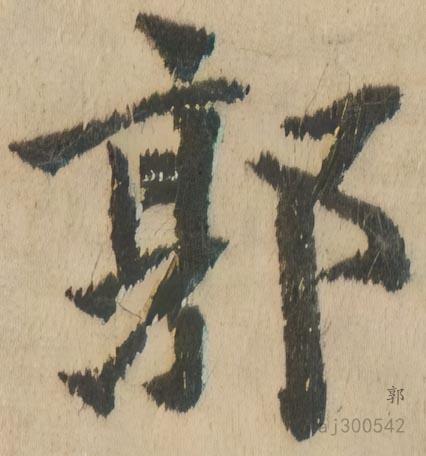 郭
郭
aj300542